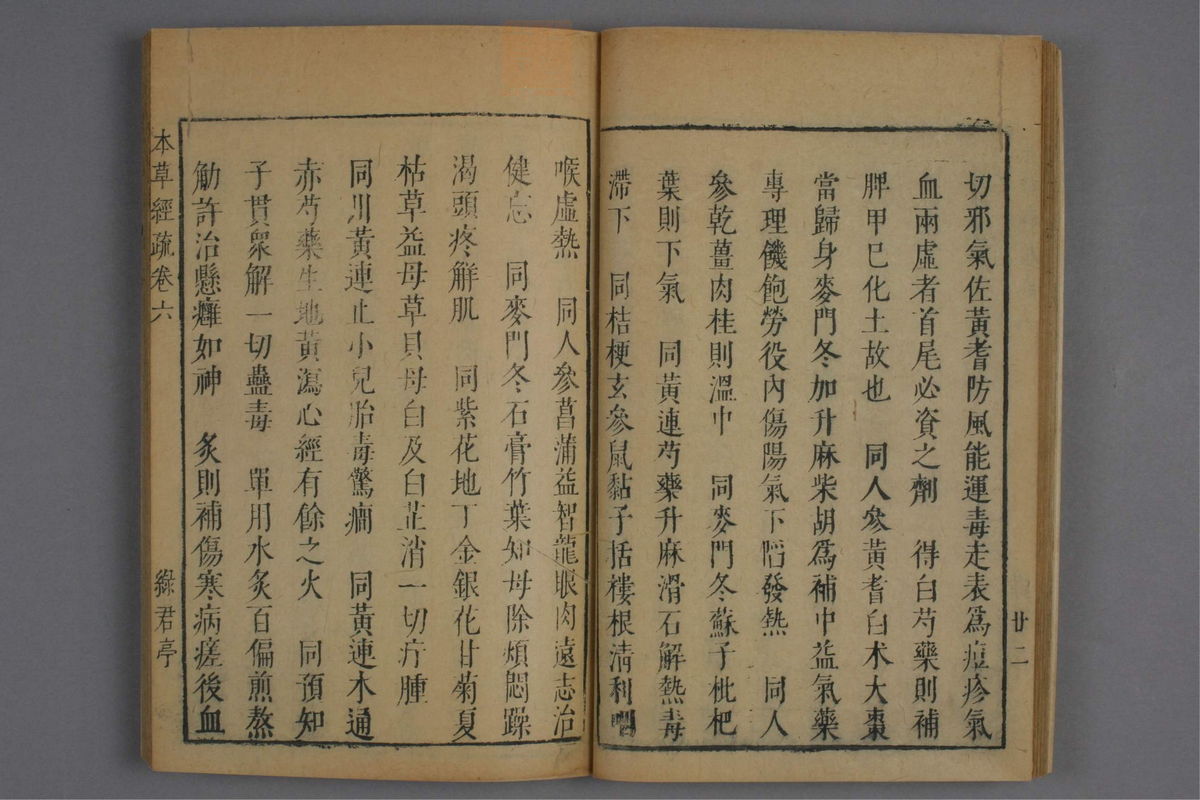 切邪氣佐黃耆防風能運毒走表爲痘疹氣
血兩虛者首尾必資之劑　得白芍藥則補
脾甲巳化土故也　同人參黃耆白朮大棗
當歸身麥門冬加升麻柴胡爲補中益氣藥
專理饑飽勞役內傷陽氣下陷發熱　同人
參乾薑肉桂則溫中　同麥門冬蘇子枇杷
葉則下氣　同黃連芍藥升麻滑石解熱毒
滯下　同桔梗玄參鼠黏子括樓根清利咽
廿二
喉虛熱　同人參菖蒲益智龍眼肉遠志治
健忘　同麥門冬石膏竹葉知母除煩悶躁
渴頭疼解肌　同紫花地丁金銀花甘菊夏
枯草益母草貝母白及白芷消一切疔腫
同川黃連止小兒胎毒驚癇　同黃連木通
赤芍藥生地黃瀉心經有餘之火　同預知
子貫衆解一切蠱毒　單用水炙百徧煎熬
斛許治懸癰如神　炙則補傷寒病瘥後血
本草經疏卷六
綠君亭